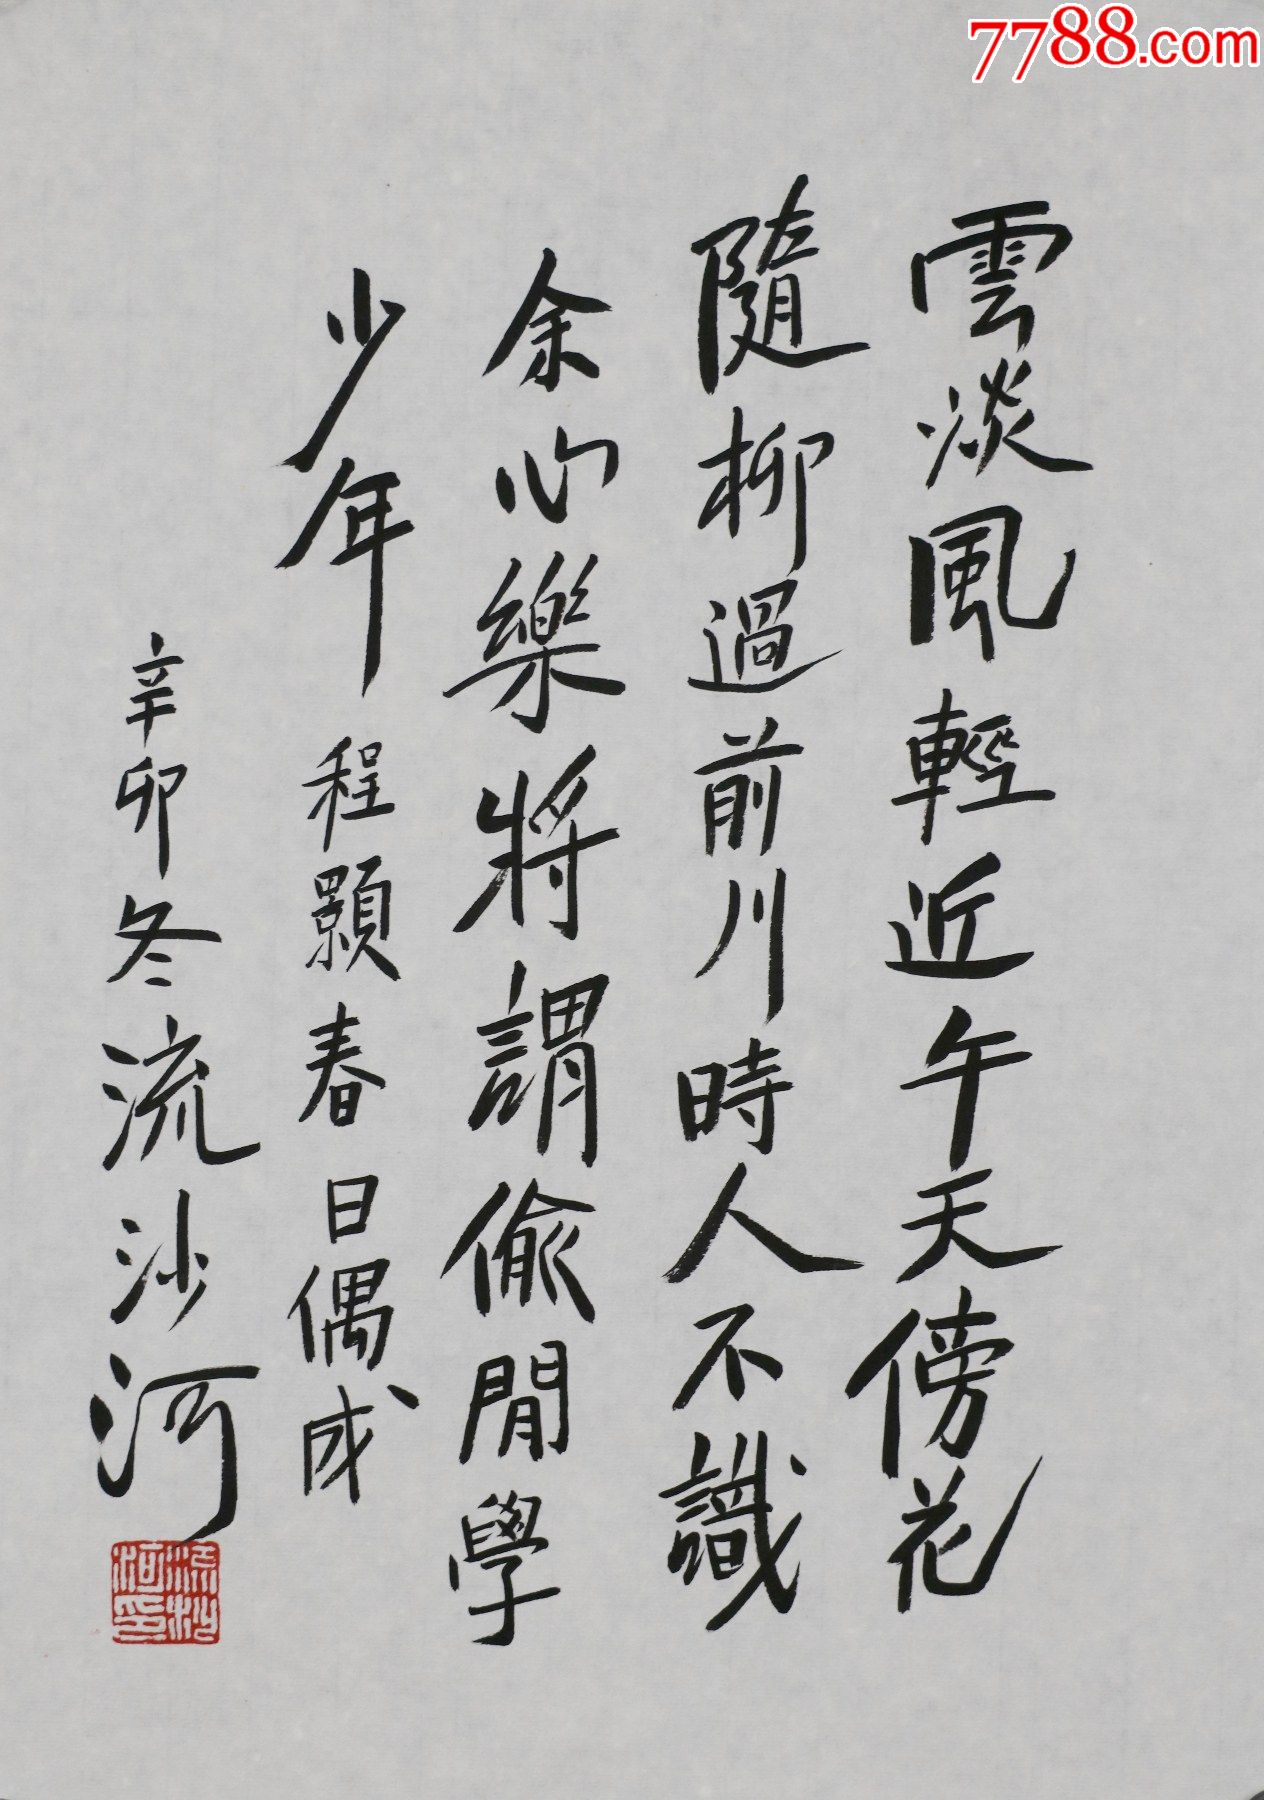 7788.com
雲淡風輕近午天傍花
隨柳過前川時人不識
余心樂將謂偷閒學
少年 程顥春日偶成
辛卯冬流沙河
流沙河印